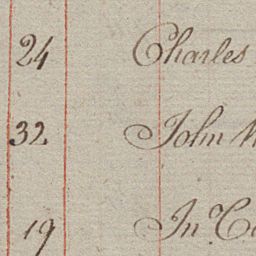 24 Charles
32 John
19 In: Co